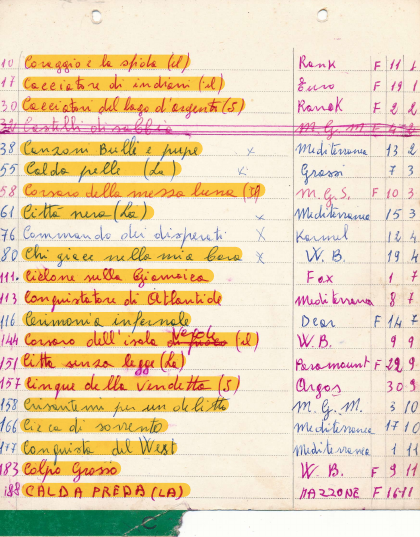 10 Coraggio e la sfida (il) Rank F 11 1
17 Cacciatore di indiani (il) Euro F 19 1
30 Cacciatori del lago d'argento (S) Rank F 2 2
Castelli di sabbia M.G.M. F
38 Canzoni Bulli e pupe x Mediterranea 13 2
55 Calda pelle (La) x Grassi 7 3
58 Corsaro della mezza luna (Il) M.G.S. F 10 3
61 Citta nera (La) x Mediterranea 15 3
76 Commando dei disperati X Karmel 12 4
80 Chi giace nella mia bara X W.B. 19 4
111. Ciclone sulla Giamaica Fox 1 7
113 Conquistatore di Atlantide Mediterranea 8 7
116 Cerimonia infernale Dear F 14 7
144 Corsaro dell'isola verde (il) W.B. 9 9
151 Citta senza legge (La) Paramount F 22 9
157 Cinque della vendetta (S) Argos 30 9
158 Crisantemi per un delitto M.G.M. 3 10
166 Cieca di sorrento Mediterranea 17 10
177 Conquista del West Mediterranea 1 11
183 Colpo Grosso W.B. F 9 11
188 CALDA PREDA (LA) MAZZONE F 16-11